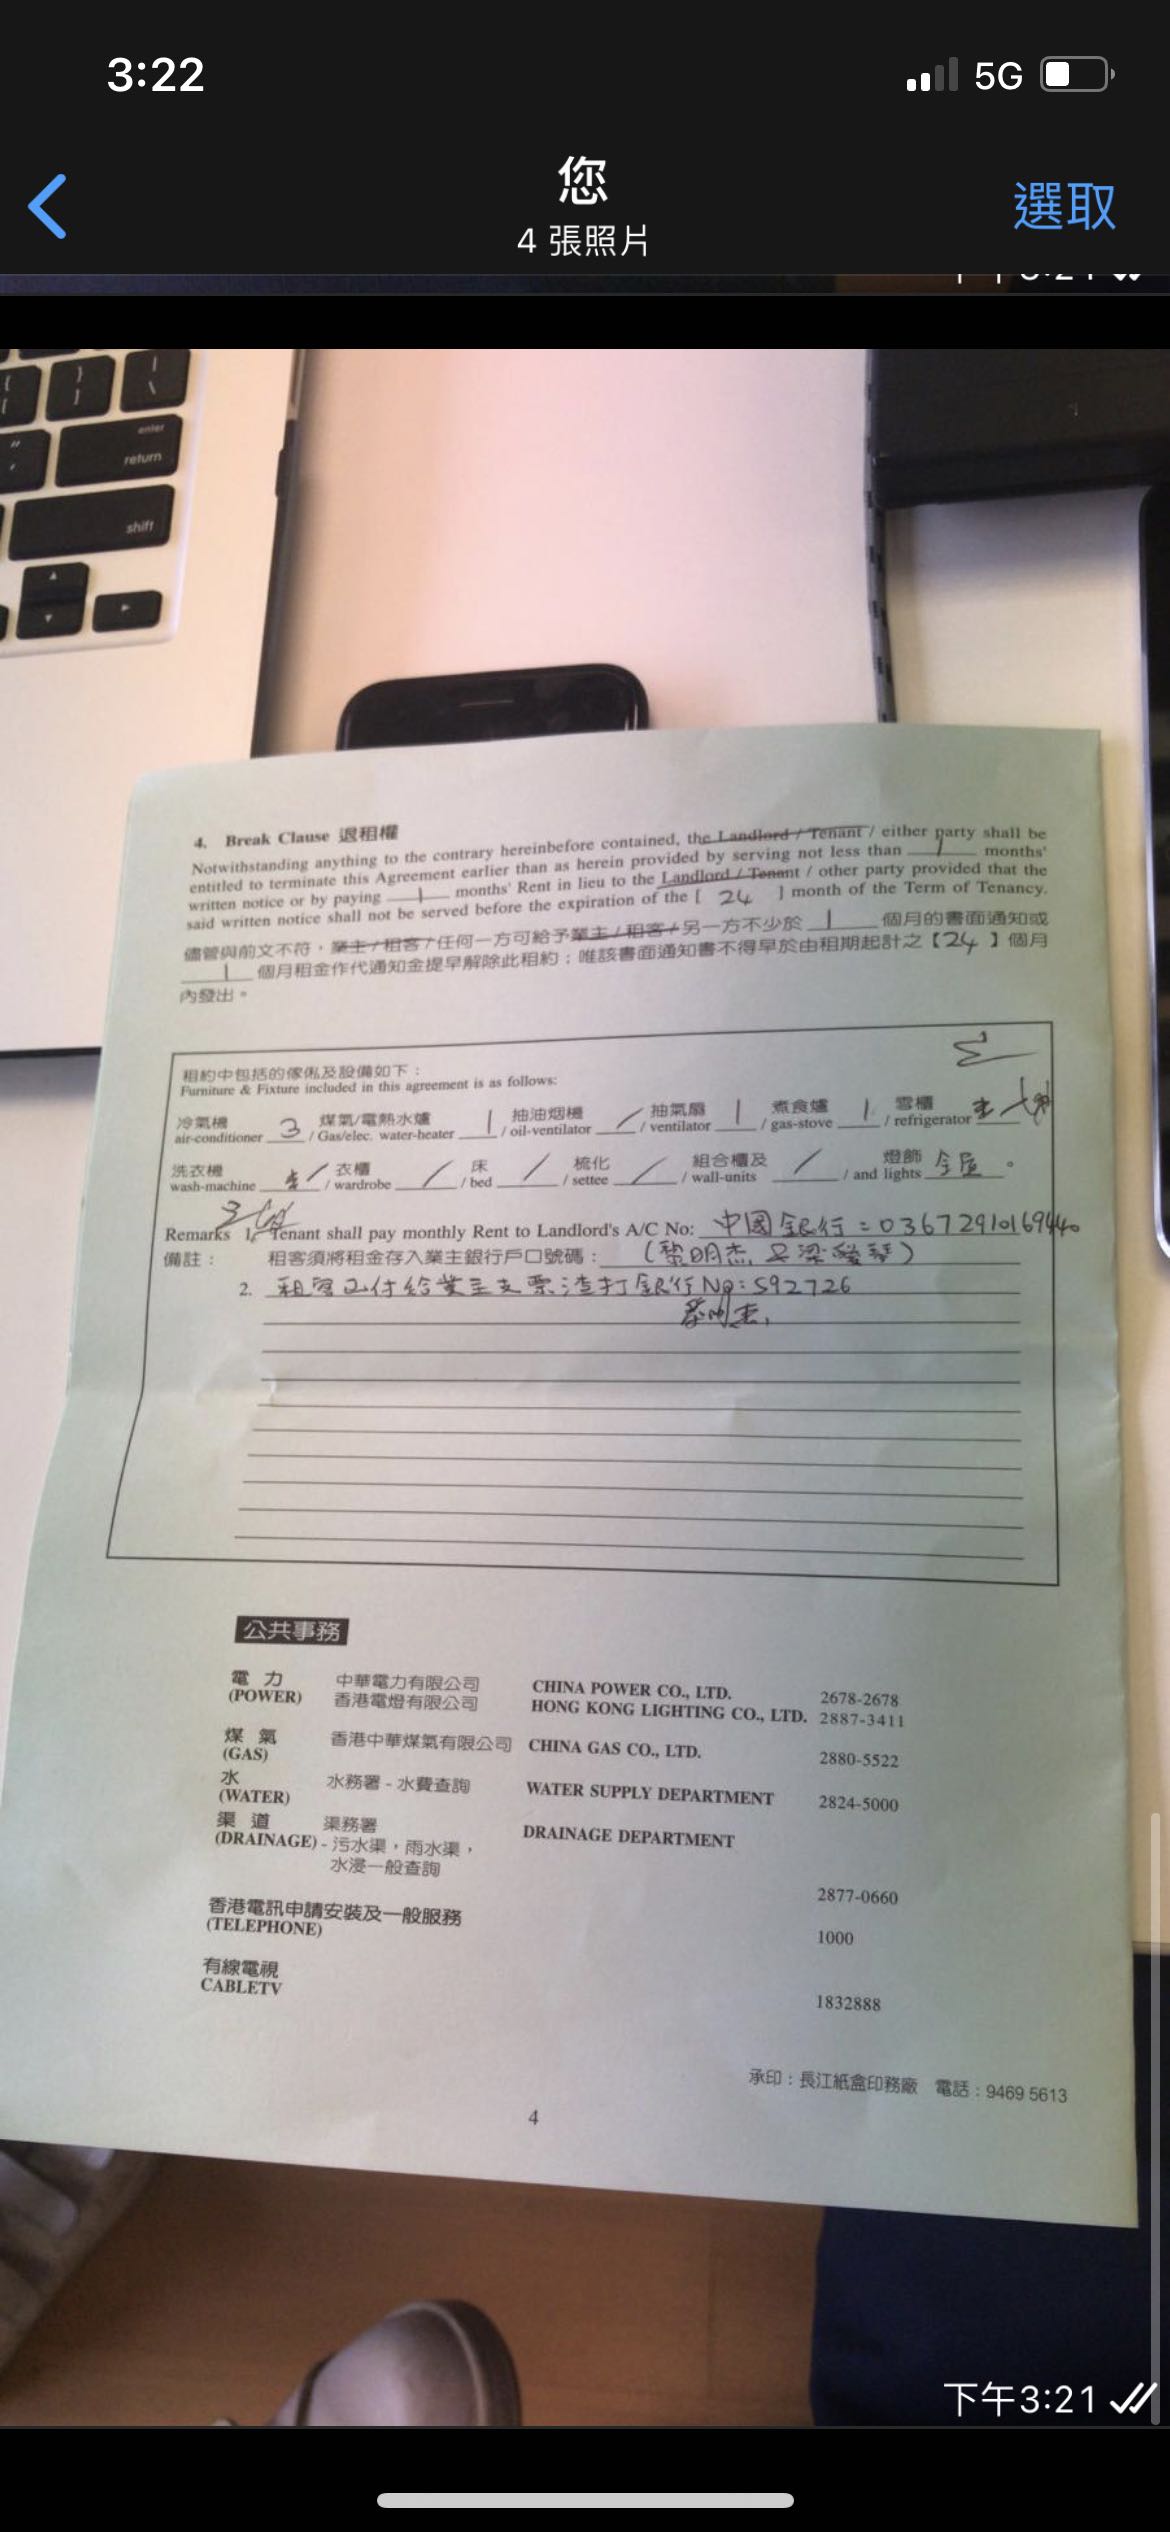 3:22
5G
您
4 張照片
選取
4. Break Clause 退租權
Notwithstanding anything to the contrary hereinbefore contained, the Landlord / Tenant / either party shall be
entitled to terminate this Agreement earlier than as herein provided by serving not less than 1 months'
written notice or by paying 1 months' Rent in lieu to the Landlord / Tenant / other party provided that the
said written notice shall not be served before the expiration of the [ 24 ] month of the Term of Tenancy.
儘管與前文不符，業主/租客/任何一方可給予業主/租客/另一方不少於 1 個月的書面通知或
1 個月租金作代通知金提早解除此租約；唯該書面通知書不得早於由租期起計之【24】個月
內發出。
租約中包括的傢俬及設備如下：
Furniture & Fixture included in this agreement is as follows:
冷氣機 煤氣/電熱水爐 抽油烟機 抽氣扇 煮食爐 雪櫃
air-conditioner 3 / Gas/elec. water-heater 1 / oil-ventilator / / ventilator 1 / gas-stove 1 / refrigerator
洗衣機 衣櫃 床 梳化 組合櫃及 燈飾
wash-machine / wardrobe / / bed / / settee / / wall-units / / and lights 全屋。
Remarks 1. Tenant shall pay monthly Rent to Landlord's A/C No: 中國銀行：03672910169440
備註： 租客須將租金存入業主銀行戶口號碼： (黎明杰 梁 琴)
2. 租 付給業主支票渣打銀行 No: 592726
公共事務
電 力 中華電力有限公司 CHINA POWER CO., LTD. 2678-2678
(POWER) 香港電燈有限公司 HONG KONG LIGHTING CO., LTD. 2887-3411
煤 氣 香港中華煤氣有限公司 CHINA GAS CO., LTD. 2880-5522
(GAS)
水 水務署 - 水費查詢 WATER SUPPLY DEPARTMENT 2824-5000
(WATER)
渠 道 渠務署 DRAINAGE DEPARTMENT
(DRAINAGE) - 污水渠，雨水渠，
水浸一般查詢
2877-0660
香港電訊申請安裝及一般服務
(TELEPHONE) 1000
有線電視
CABLETV 1832888
承印：長江紙盒印務廠 電話：9469 5613
4
enter
return
shift
下午3:21